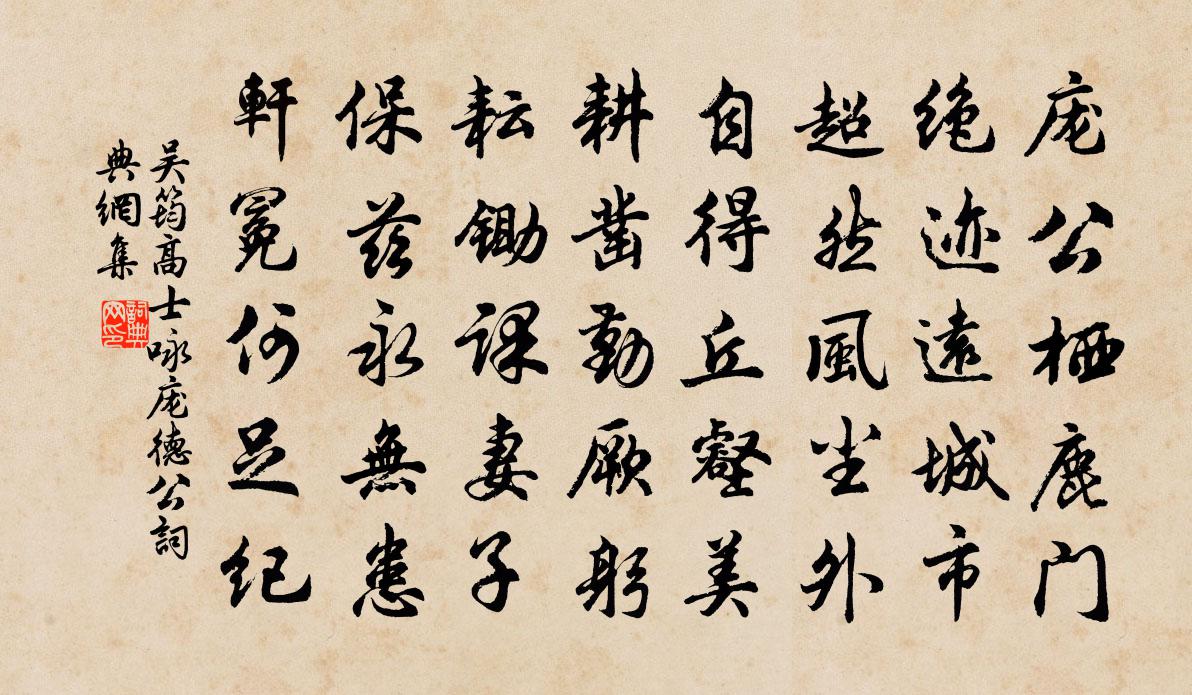 庞公栖鹿门
绝迹远城市
超然風尘外
自得丘壑美
耕凿勤厥躬
耘锄课妻子
保兹永無患
軒冕何足纪
吴筠高士咏庞德公詞
典網集
詞典
网印